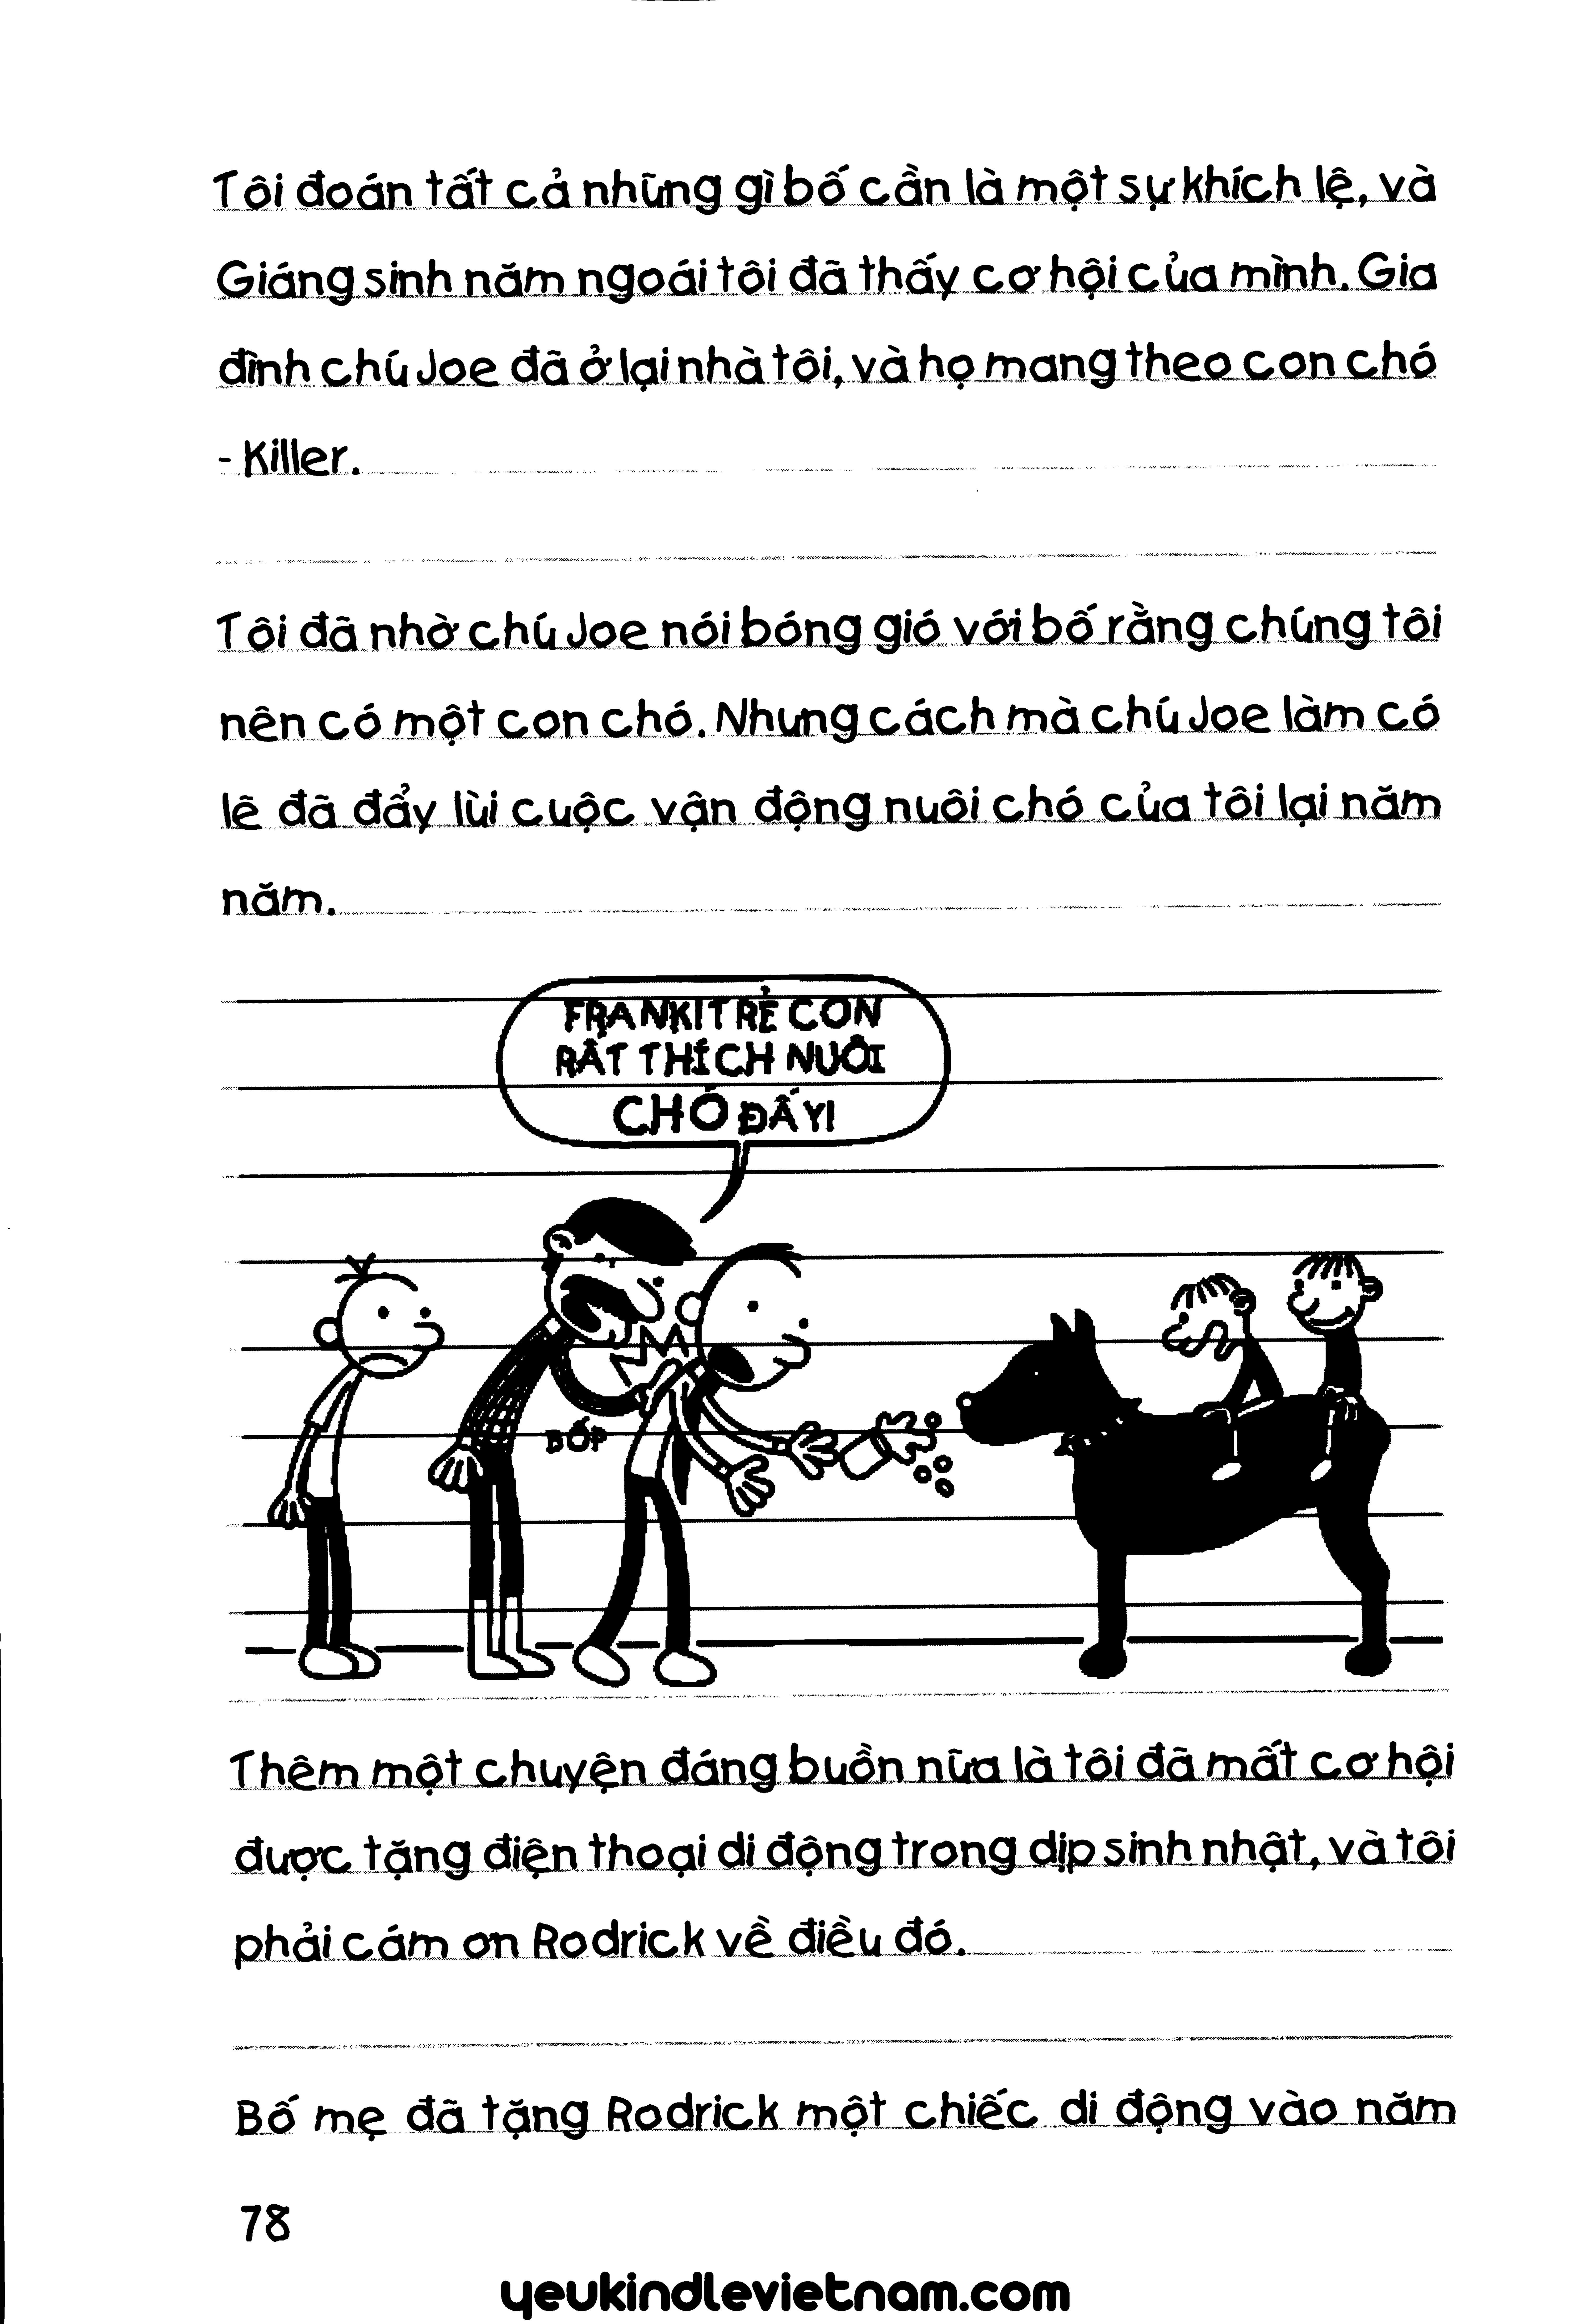 Tôi đoán tất cả những gì bố cần là một sự khích lệ, và
Giáng sinh năm ngoái tôi đã thấy cơ hội của mình. Gia
đình chú Joe đã ở lại nhà tôi, và họ mang theo con chó
- Killer.
Tôi đã nhờ chú Joe nói bóng gió với bố rằng chúng tôi
nên có một con chó. Nhưng cách mà chú Joe làm có
lẽ đã đẩy lùi cuộc vận động nuôi chó của tôi lại năm
năm.
FRANK! TRẺ CON
RẤT THÍCH NUÔI
CHÓ ĐẤY!
BỐP
Thêm một chuyện đáng buồn nữa là tôi đã mất cơ hội
được tặng điện thoại di động trong dịp sinh nhật, và tôi
phải cám ơn Rodrick về điều đó.
Bố mẹ đã tặng Rodrick một chiếc di động vào năm
78
yeukindlevietnam.com